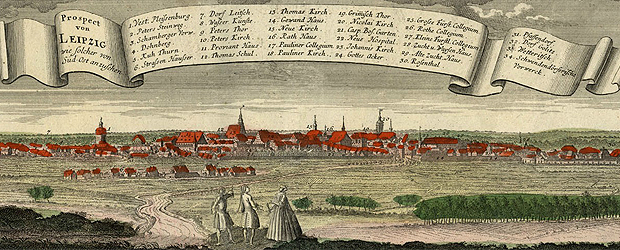 Prospect
von
LEIPZIG
wie solcher von
Süd-Ost anzusehen
1. Vest. Pleisenburg
2. Peters Steinweg
3. Schamberger Vorw.
4. Dohnberg
5. Kuh Thurn
6. Strassen Hauser
7. Dorf Luitsch
8. Wasser Künste
9. Peters Thor
10. Peters Kirch
11. Proviant Haus
12. Thomas Schul
13. Thomas Kirch
14. Gewand Haus
15. Neue Kirch
16. Rath Haus
17. Pauliner Collegium
18. Pauliner Kirch
19. Grimisch Thor
20. Nicolai Kirch
21. Casp. Bos. Garten
22. Neue Hospital
23. Johannis Kirch
24. Gottes Acker
25. Groses Fürstl. Collegium
26. Rothe Collegium
27. Kleine Fürstl. Collegium
28. Zucht u. Waysen Haus
29. Alte Zucht Haus
30. Rosenthal
31. Pfaffendorf
32. Dorf Golitz
33. Wetteritzsch
34. Schwendendörffers
Vorwerck